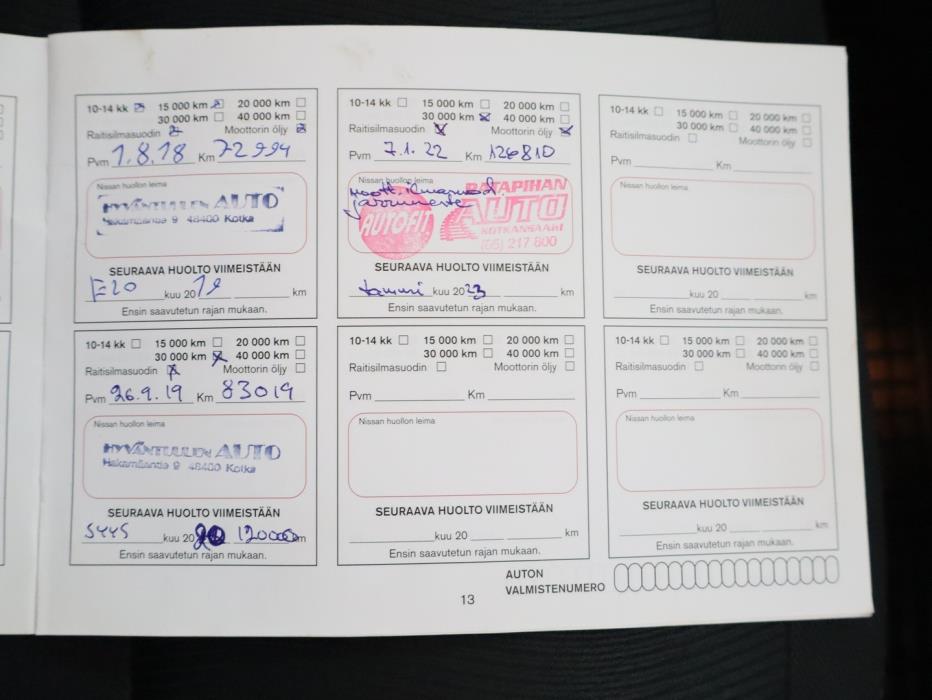 10-14 kk ☒ 15 000 km ☒ 20 000 km ☐
30 000 km ☐ 40 000 km ☐
Raitisilmasuodin ☒ Moottorin öljy ☒
Pvm 1.8.18 Km 72994
Nissan huollon leima
HYVÄNTUULEN AUTO
Hakamäentie 9 48400 Kotka
SEURAAVA HUOLTO VIIMEISTÄÄN
kuu 2019 km
Ensin saavutetun rajan mukaan.
10-14 kk ☐ 15 000 km ☐ 20 000 km ☐
30 000 km ☒ 40 000 km ☐
Raitisilmasuodin ☒ Moottorin öljy ☐
Pvm 26.9.19 Km 83019
Nissan huollon leima
HYVÄNTUULEN AUTO
Hakamäentie 9 48400 Kotka
SEURAAVA HUOLTO VIIMEISTÄÄN
SYYS kuu 2020 120000 km
Ensin saavutetun rajan mukaan.
10-14 kk ☐ 15 000 km ☐ 20 000 km ☐
30 000 km ☒ 40 000 km ☐
Raitisilmasuodin ☒ Moottorin öljy ☒
Pvm 7.1.22 Km 126810
Nissan huollon leima
moott. ilmansuod.
jarruneste
AUTOFIT
RATAPIHAN
AUTO
KOTKANSAARI
(05) 217 800
SEURAAVA HUOLTO VIIMEISTÄÄN
tammi kuu 2023 km
Ensin saavutetun rajan mukaan.
10-14 kk ☐ 15 000 km ☐ 20 000 km ☐
30 000 km ☐ 40 000 km ☐
Raitisilmasuodin ☐ Moottorin öljy ☐
Pvm Km
Nissan huollon leima
SEURAAVA HUOLTO VIIMEISTÄÄN
kuu 20 km
Ensin saavutetun rajan mukaan.
10-14 kk ☐ 15 000 km ☐ 20 000 km ☐
30 000 km ☐ 40 000 km ☐
Raitisilmasuodin ☐ Moottorin öljy ☐
Pvm Km
Nissan huollon leima
SEURAAVA HUOLTO VIIMEISTÄÄN
kuu 20 km
Ensin saavutetun rajan mukaan.
10-14 kk ☐ 15 000 km ☐ 20 000 km ☐
30 000 km ☐ 40 000 km ☐
Raitisilmasuodin ☐ Moottorin öljy ☐
Pvm Km
Nissan huollon leima
SEURAAVA HUOLTO VIIMEISTÄÄN
kuu 20 km
Ensin saavutetun rajan mukaan.
AUTON
VALMISTENUMERO
13